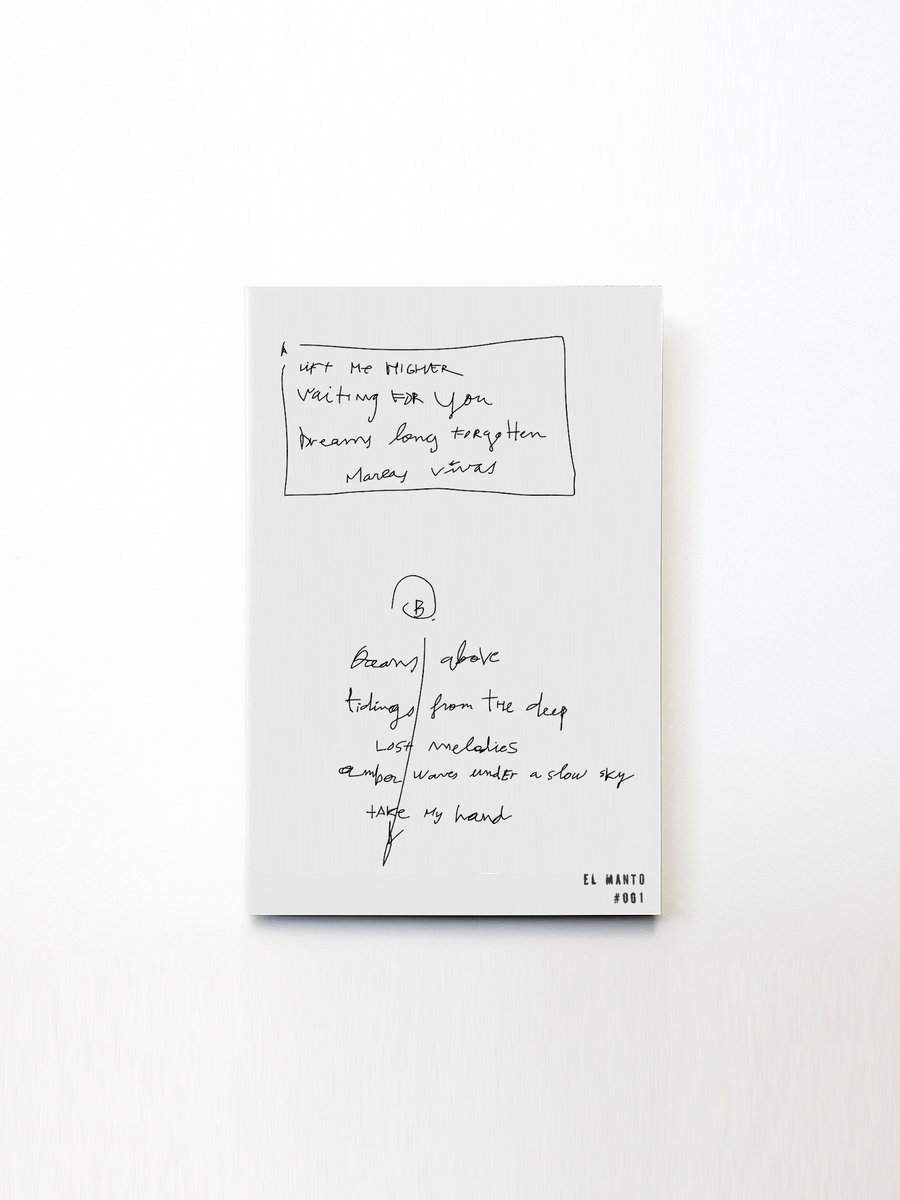 A
LIFT Me HIGHER
Waiting FOR You
Dreams long FORgotten
Mareas vivas
B.
Oceans above
tidings from THe deep
LOST melodies
amber waves undEr a slow sky
tAKe My hand
EL MANTO
#001